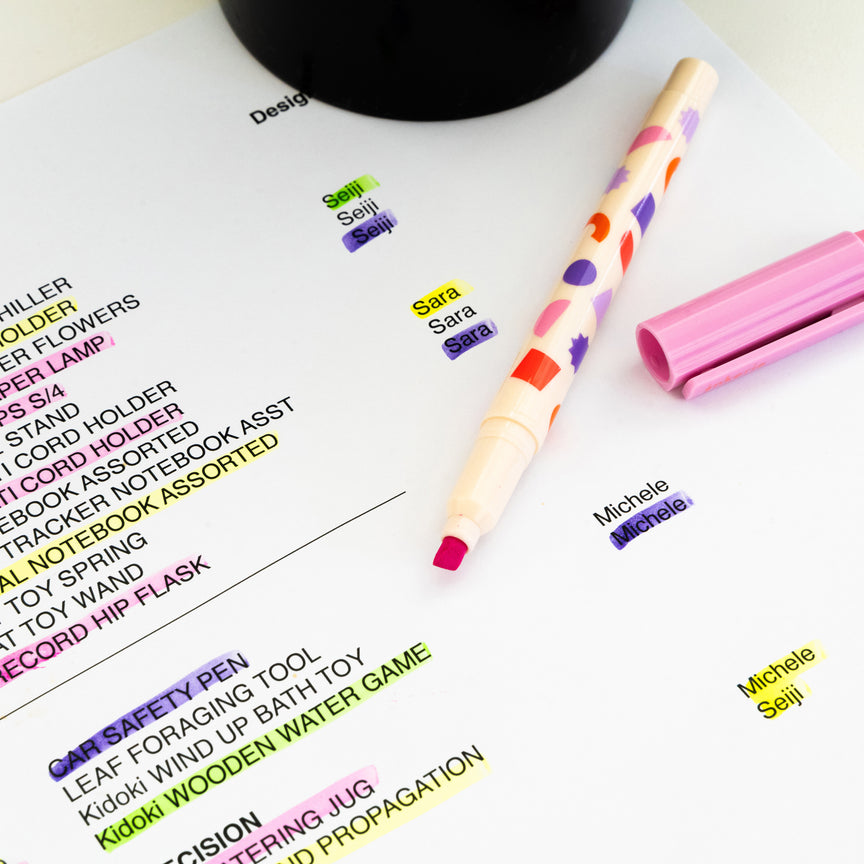 Seiji
Seiji
Seiji
Sara
Sara
Sara
HOLDER
FLOWERS
LAMP
S/4
STAND
CORD HOLDER
CORD HOLDER
ASSORTED
TRACKER NOTEBOOK ASST
NOTEBOOK ASSORTED
TOY SPRING
TOY WAND
RECORD HIP FLASK
Michele
Michele
CAR SAFETY PEN
LEAF FORAGING TOOL
Kidoki WIND UP BATH TOY
Kidoki WOODEN WATER GAME
Michele
Seiji
JUG
PROPAGATION